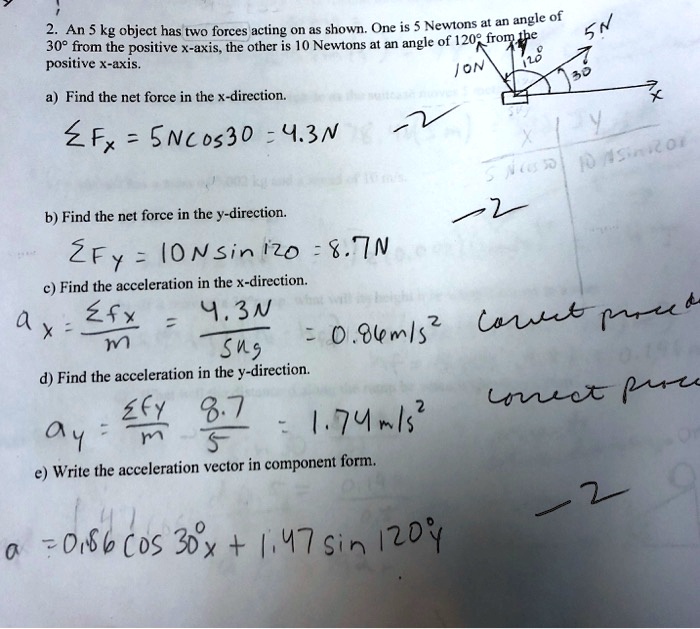 2. An 5 kg object has two forces acting on as shown. One is 5 Newtons at an angle of
30° from the positive x-axis, the other is 10 Newtons at an angle of 120° from the
positive x-axis.
5N
10N
120°
30
x
a) Find the net force in the x-direction.
ΣFx = 5Ncos30 = 4.3N
-2
X Y
5Ncos30 10Nsin120
b) Find the net force in the y-direction.
-2
ΣFy = 10Nsin120 = 8.7N
c) Find the acceleration in the x-direction.
ax = Σfx/m = 4.3N/5kg = 0.86m/s²
Correct
d) Find the acceleration in the y-direction.
ay = Σfy/m 8.7/5 = 1.74m/s²
correct
e) Write the acceleration vector in component form.
-2
a = 0.86 cos 30°x + 1.47 sin 120°y